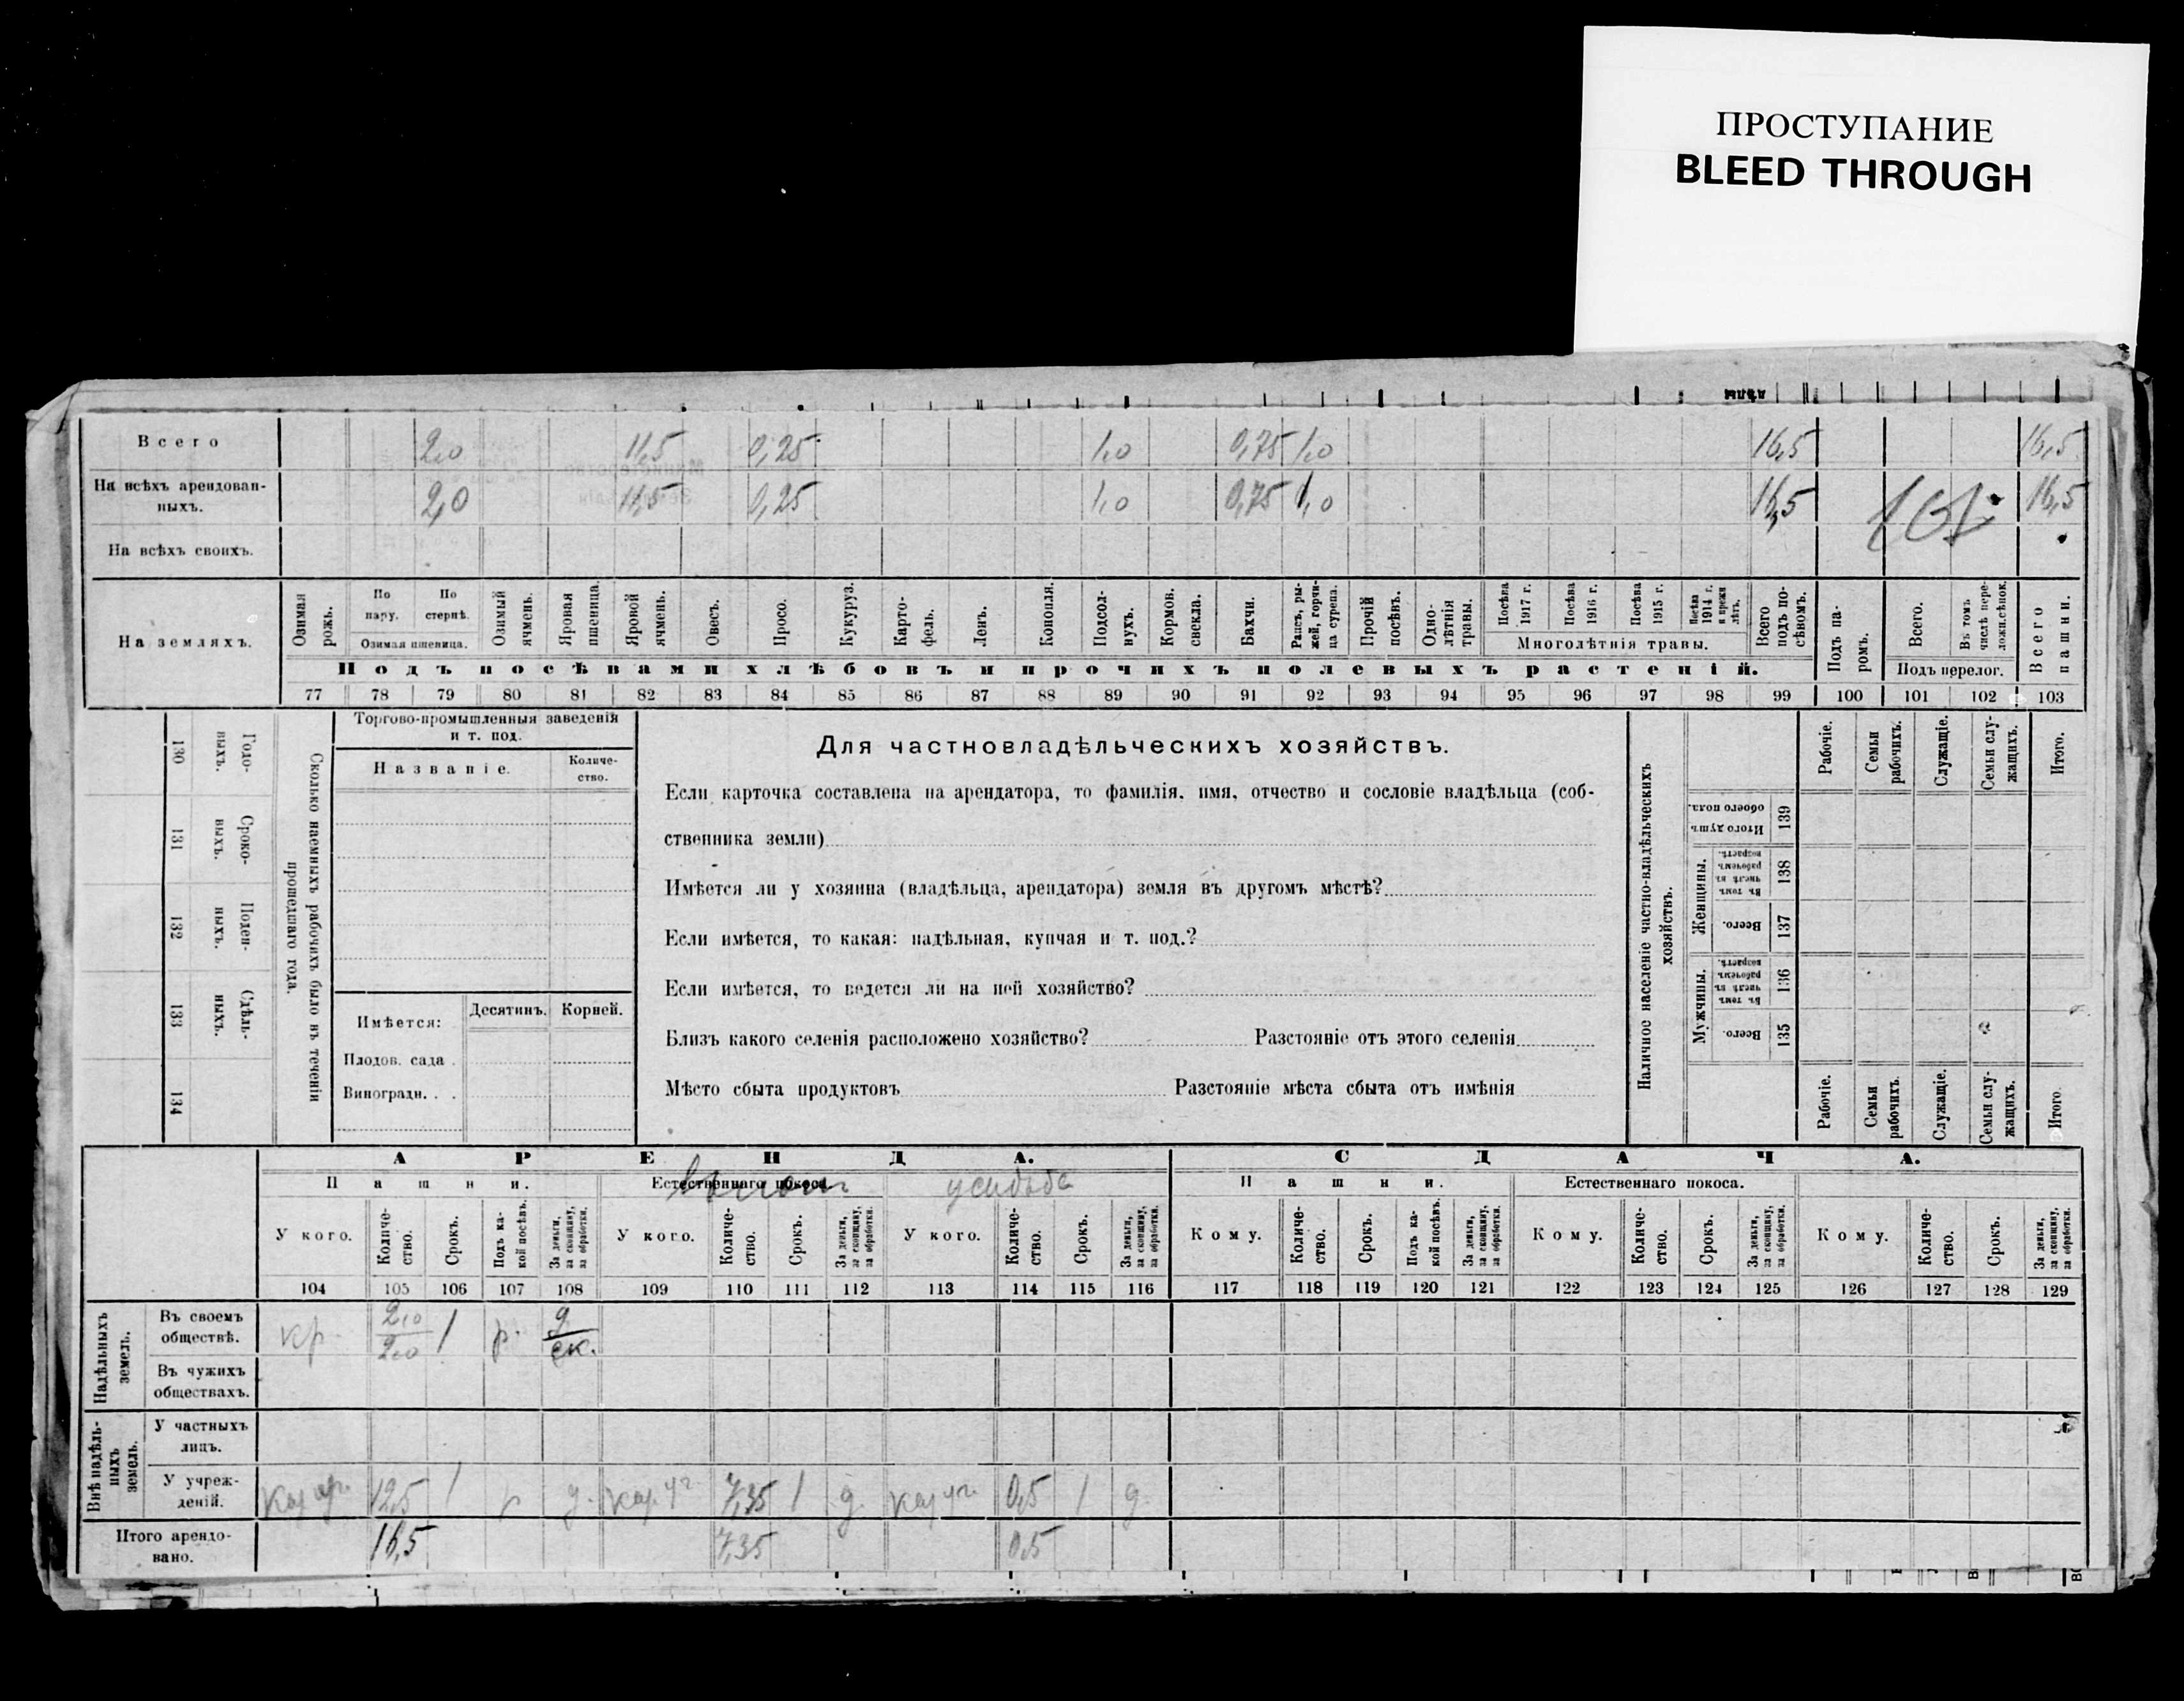 ПРОСТУПАНИЕ
BLEED THROUGH
Всего 2,0 11,5 0,25 1,0 0,75 1,0 16,5 16,5
На всѣхъ арендован-
ныхъ. 2,0 11,5 0,25 1,0 0,75 1,0 16,5 16,5
На всѣхъ своихъ.
На земляхъ.
Озимая рожь.
По пару.
По стернѣ.
Озимая пшеница.
Озимый ячмень.
Яровая пшеница.
Яровой ячмень.
Овесъ.
Просо.
Кукуруз.
Карто-
фель.
Ленъ.
Конопля.
Подсол-
нухъ.
Кормов.
свекла.
Бахчи.
Рапсъ, ры-
жей, горчи-
ца сурепа.
Прочій
посѣвъ.
Одно-
лѣтнія
травы.
Посѣва
1917 г.
Посѣва
1916 г.
Посѣва
1915 г.
Посѣва
1914 г.
и прежн
лѣтъ.
Многолѣтнія травы.
Всего
подъ по-
сѣвомъ.
Подъ па-
ромъ.
Всего.
Въ томъ
числѣ пере-
ложн.сѣнок.
Подъ перелог.
Всего
пашни.
Подъ посѣвами хлѣбовъ и прочихъ полевыхъ растеній.
77 78 79 80 81 82 83 84 85 86 87 88 89 90 91 92 93 94 95 96 97 98 99 100 101 102 103
130 Годо-
выхъ.
131 Сроко-
выхъ.
132 Поден-
ныхъ.
133 Сдѣль-
ныхъ.
134
Сколько наемныхъ рабочихъ было въ теченіи
прошедшаго года.
Торгово-промышленныя заведенія
и т. под.
Названіе.
Количе-
ство.
Имѣется:
Десятинъ.
Корней.
Плодов. сада .
Виноградн. . .
Для частновладѣльческихъ хозяйствъ.
Если карточка составлена на арендатора, то фамилія, имя, отчество и сословіе владѣльца (соб-
ственника земли)
Имѣется ли у хозяина (владѣльца, арендатора) земля въ другомъ мѣстѣ?
Если имѣется, то какая: надѣльная, купчая и т. под.?
Если имѣется, то ведется ли на ней хозяйство?
Близъ какого селенія расположено хозяйство? Разстояніе отъ этого селенія
Мѣсто сбыта продуктовъ Разстояніе мѣста сбыта отъ имѣнія
Наличное населеніе частно-владѣльческихъ
хозяйствъ.
Рабочіе.
Семьи
рабочихъ.
Служащіе.
Семьи слу-
жащихъ.
Итого.
Итого душъ
обоего пола.
139
Женщины.
Въ томъ
числѣ въ
рабочемъ
возрастѣ.
138
Всего.
137
Мужчины.
Въ томъ
числѣ въ
рабочемъ
возрастѣ.
136
Всего.
135
Рабочіе.
Семьи
рабочихъ.
Служащіе.
Семьи слу-
жащихъ.
Итого
АРЕНДА. СДАЧА.
Пашни. Естественнаго покоса. усадьба Пашни. Естественнаго покоса.
У кого.
Количе-
ство.
Срокъ.
Подъ ка-
кой посѣвъ.
За деньги,
за скопщину,
за обработки.
У кого.
Количе-
ство.
Срокъ.
За деньги,
за скопщину,
за обработки.
У кого.
Количе-
ство.
Срокъ.
За деньги,
за скопщину,
за обработки.
Кому.
Количе-
ство.
Срокъ.
Подъ ка-
кой посѣвъ.
За деньги,
за скопщину,
за обработки.
Кому.
Количе-
ство.
Срокъ.
За деньги,
за скопщину,
за обработки.
Кому.
Количе-
ство.
Срокъ.
За деньги,
за скопщину,
за обработки.
104 105 106 107 108 109 110 111 112 113 114 115 116 117 118 119 120 121 122 123 124 125 126 127 128 129
Надѣльныхъ
земель.
Въ своемъ
обществѣ.
кр. 2,0 / 2,0 1 р. д / ск.
Въ чужихъ
обществахъ.
Внѣ надѣль-
ныхъ
земель.
У частныхъ
лицъ.
У учреж-
деній.
12,5 1 р д. 7,35 1 д. 0,5 1 д.
Итого арендо-
вано. 16,5 7,35 0,5